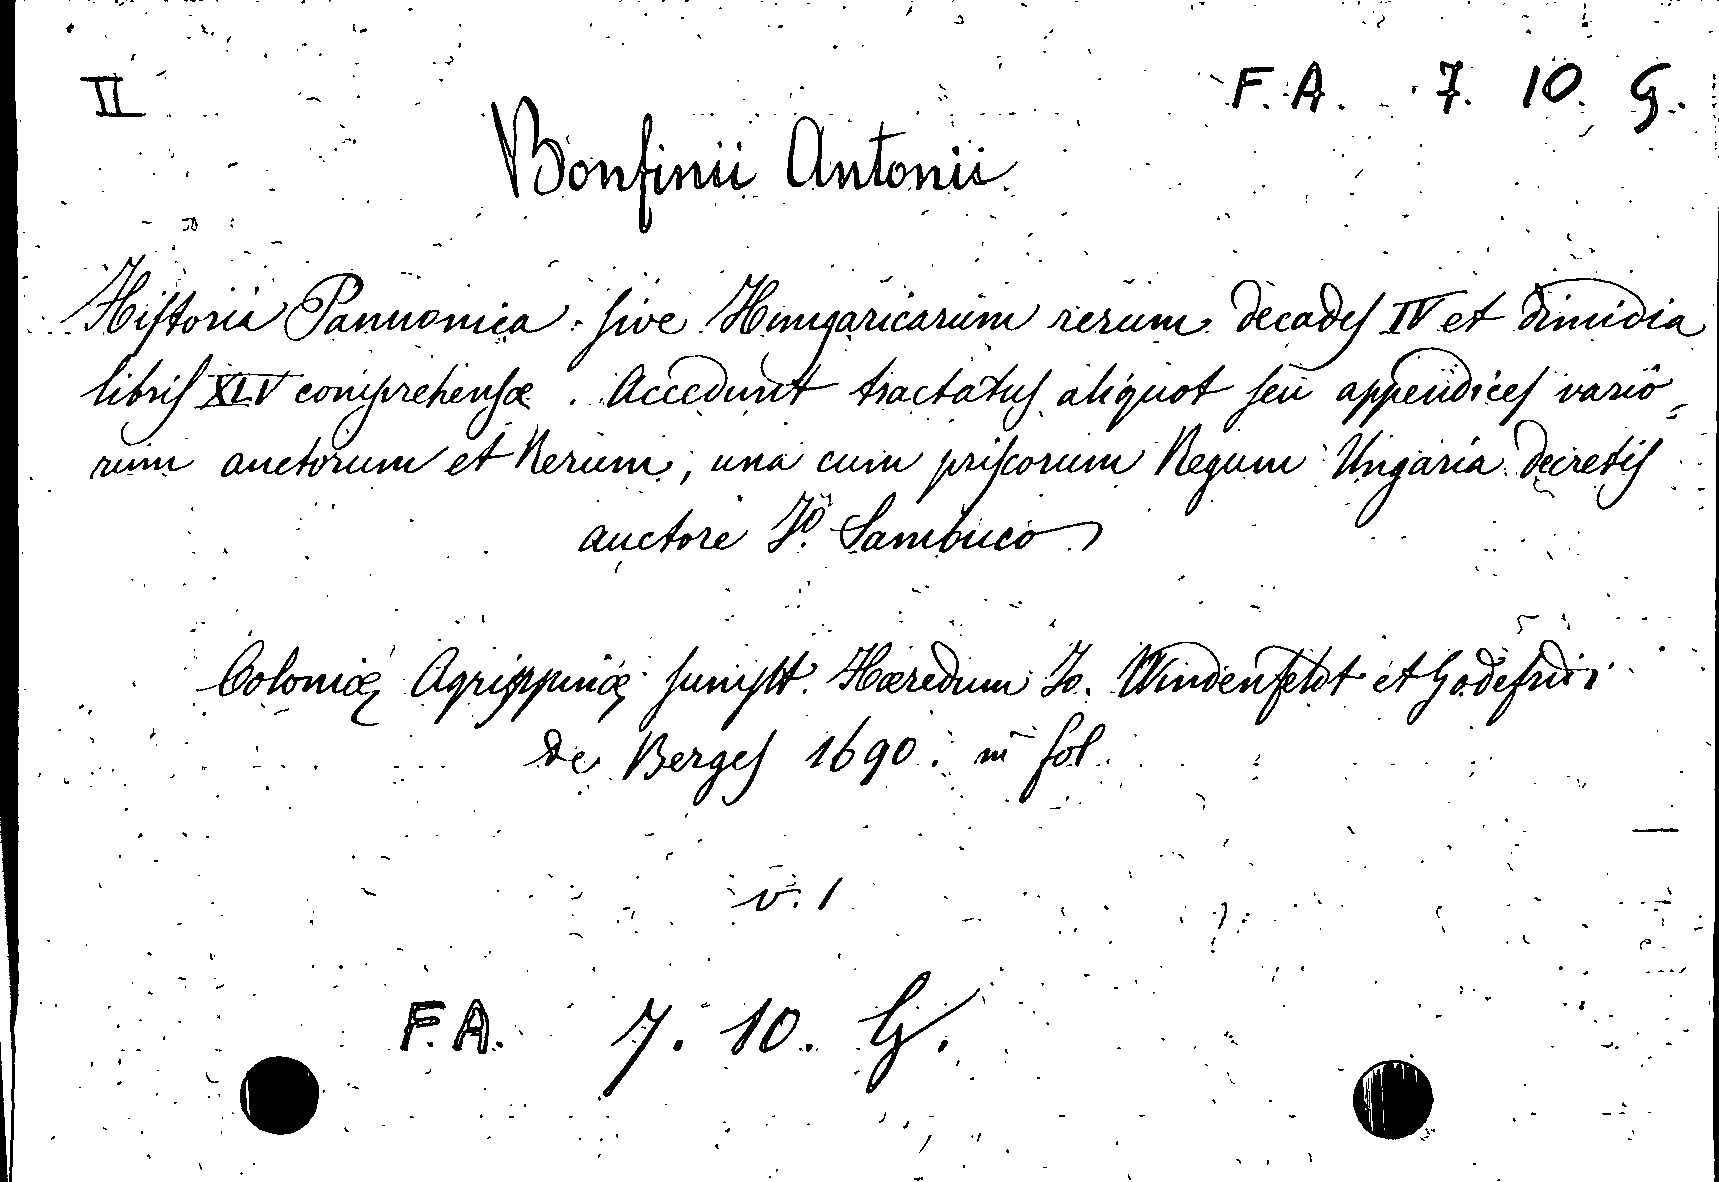 II
F. A. 7. 10. G.
Bonfinii Antonii.
Hiſtoria Pannonica ſive Hungaricarum rerum decadeſ IV et dimidia
libriſ XLV comprehenſæ. Accedunt tractatuſ aliquot ſeu appendiceſ vario=
rum auctorum et Rerum, una cum priſcorum Regum Ungaria decretiſ
auctore Jo. Sambuco
Coloniæ Agrippinæ ſumptt. Hæredum Jo. Windenfeldt et Godefridi
de Bergeſ 1690. in fol.
v. 1
F. A. 7. 10. G.